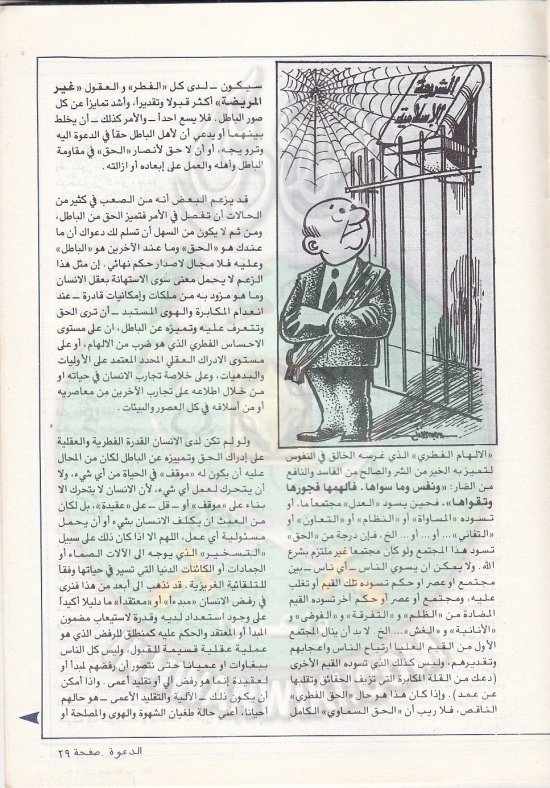 الشريعة
الاسلامية
«الالهام الفطري» الذي غرسه الخالق في النفوس
لتميز به الخير من الشر والصالح من الفاسد والنافع
من الضار: «ونفس وما سواها، فألهمها فجورها
وتقواها»، فحين يسود «العدل» مجتمعاً ما، أو
تسوده «المساواة» أو «النظام» أو «التعاون» أو
«التفاني» ... أو ... أو ... الخ، فإن درجة من «الحق»
تسود هذا المجتمع ولو كان مجتمعاً غير ملتزم بشرع
الله . ولا يمكن ان يسوي الناس ــ أي ناس ــ بين
مجتمع او عصر او حكم تسوده تلك القيم أو تغلب
عليه، ومجتمع او عصر أو حكم آخر تسوده القيم
المضادة من «الظلم» و «التفرقة» و «الفوضى» و
«الأنانية» و «الغش» ... الخ . لا بد أن ينال المجتمع
الأول من القيم العليا ارتياع الناس واعجابهم
وتقديرهم، وليس كذلك الذي تسوده القيم الأخرى
(دعك من القلة المكابرة التي تزيف الحقائق وتقلبها
عن عمد) . وإذا كان هذا هو حال «الحق الفطري»
الناقص، فلا ريب أن «الحق السماوي» الكامل
سيكون ــ لدى كل «الفطر» و العقول «غير
المريضة» أكثر قبولا وتقديراً، وأشد تمايزاً عن كل
صور الباطل . فلا يسع احداً ــ والأمر كذلك ــ أن يخلط
بينهما أو يدعي أن لأهل الباطل حقاً في الدعوة اليه
وترويجه، أو أن لا حق لأنصار «الحق» في مقاومة
الباطل وأهله والعمل على إبعاده أو ازالته .
قد يزعم البعض أنه من الصعب في كثير من
الحالات أن تفصل في الأمر فتميز الحق من الباطل،
ومن ثم لا يكون من السهل أن تسلم لك دعواك أن ما
عندك هو «الحق» وما عند الآخرين هو «الباطل»
وعليه فلا مجال لاصدار حكم نهائي . إن مثل هذا
الزعم لا يحمل معنى سوى الاستهانة بعقل الانسان
وما هو مزود به من ملكات وإمكانيات قادرة ــ عند
انعدام المكابرة والهوى المستبد ــ أن ترى الحق
وتتعرف عليه وتميزه عن الباطل، ان على مستوى
الاحساس الفطري الذي هو ضرب من الالهام، أو على
مستوى الادراك العقلي المحدد المعتمد على الأوليات
والبدهيات، وعلى خلاصة تجارب الانسان في حياته او
من خلال اطلاعه على تجارب الآخرين من معاصريه
او من أسلافه في كل العصور والبيئات .
ولو لم تكن لدى الانسان القدرة الفطرية والعقلية
على إدراك الحق وتمييزه عن الباطل لكان من المحال
عليه أن يكون له «موقف» في الحياة من أي شيء، ولا
أن يتحرك لعمل أي شيء، لأن الانسان لا يتحرك الا
بناء على «موقف» أو ــ قل ــ على «عقيدة»، بل لكان
من العبث إن يكلف الانسان بشيء أو أن يحمل
مسئولية أي عمل، اللهم الا اذا كان ذلك على سبيل
«التسخير» الذي يوجه الى الآلات الصماء أو
الجمادات أو الكائنات الدنيا التي تسير في حياتها وفقاً
للتلقائية الغريزية . قد نذهب الى أبعد من هذا فنرى
في رفض الانسان «مبدءاً» أو «معتقداً» ما دليلا أكيداً
على وجود استعداد لديه وقدرة لاستيعاب مضمون
المبدأ أو المعتقد والحكم عليه كمنطلق للرفض الذي هو
عملية عقلية قسيمة للقبول، وليس كل الناس
ببغاوات أو عمياناً حتى نتصور أن رفضهم لمبدأ أو
لعقيدة إنما هو رفض آلي أو تقليد أعمى . واذا أمكن
ان يكون ذلك ــ الآلية والتقليد الأعمى ــ هو حالهم
أحيانا، أعني حالة طغيان الشهوة والهوى والمصلحة أو
الدعوة . صفحة ٢٩